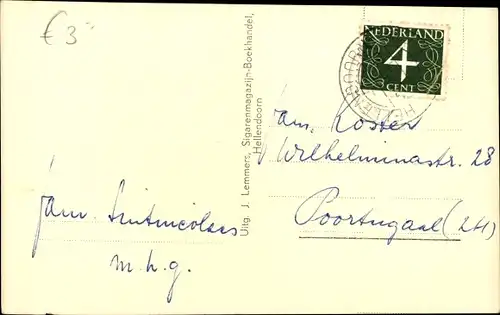 € 3
NEDERLAND
4
CENT
Uitg. J. Lemmers, Sigarenmagazijn-Boekhandel,
Hellendoorn
fam. Koster
Wilhelminastr. 28
Poortugaal (ZH)
fam.
m.h.g.